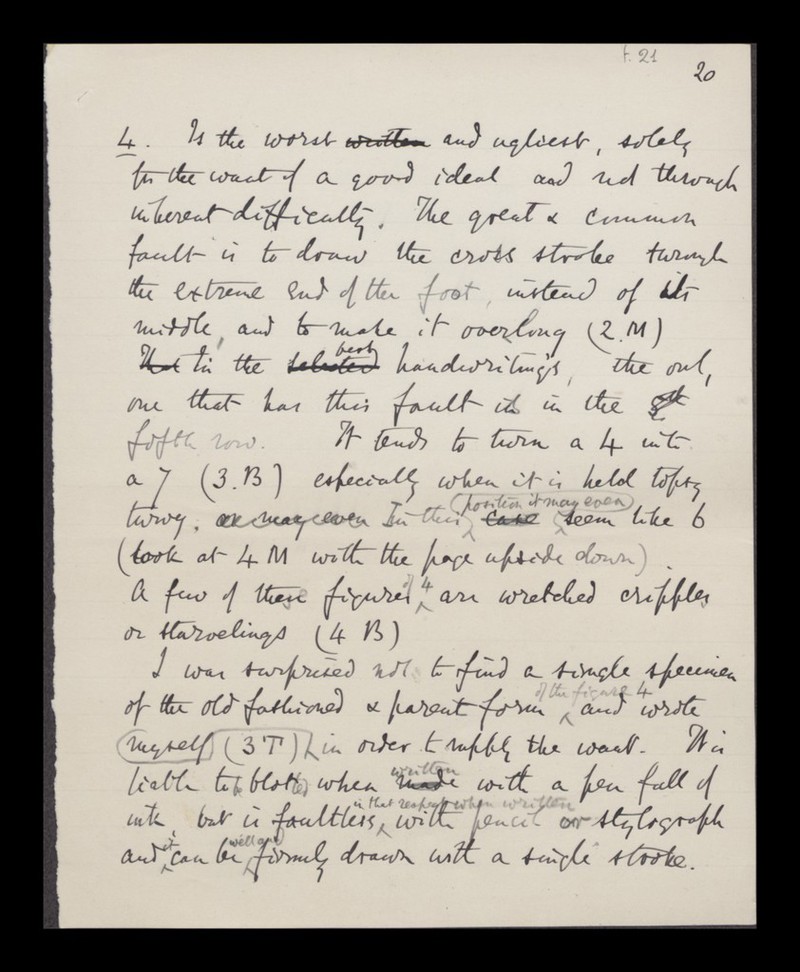 f. 21
20
4. Is the worst written and ugliest, solely
for the want of a good ideal and not through
inherent difficulty. The great & common
fault is to draw the cross stroke through
the extreme end of the foot, instead of its
middle, and to make it overlong (2.M)
That In the selected best handwritings, the only
one that has this fault is in the 5th
fifth row. It tends to turn a 4 into
a 7 (3.B) especially when it is held topsy
turvy. or may even In this case position it may even seem like 6
(look at 4 M with the page upside down).
A few of these figures of 4 are wretched cripples
or starvelings (4 B)
I was surprised not to find a single specimen
of the old fashioned & parent form of the figure 4 and wrote
myself (3 T) in order to supply the want. It is
liable to blotted when made written with a pen full of
ink, but is faultless in that respect when written with pencil or stylograph
and it can be well and firmly drawn with a single stroke.